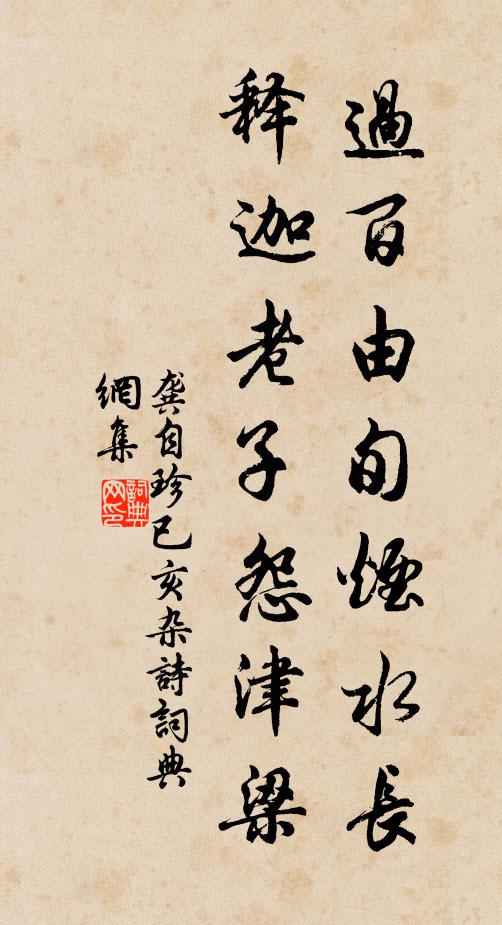 過百由旬煙水長
释迦老子怨津梁
龚自珍已亥杂詩詞典
網集
詞典網印